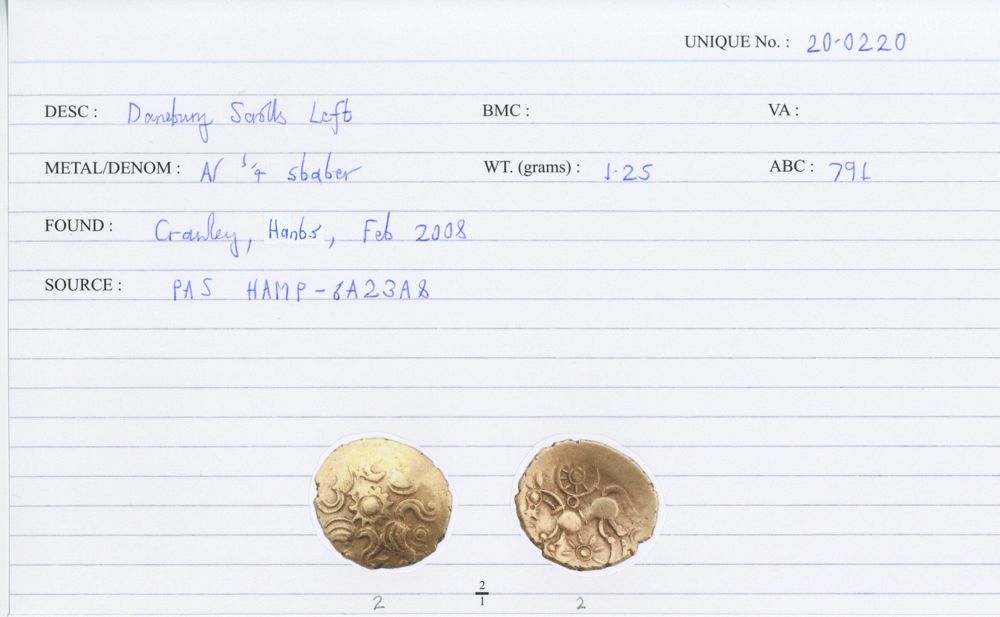 UNIQUE No. : 20-0220
DESC : Danebury Scrolls Left BMC : VA :
METAL/DENOM : AV 1/4 stater WT. (grams) : 1.25 ABC : 791
FOUND : Crawley, Hants, Feb 2008
SOURCE : PAS HAMP-8A23A8
2 2/1 2